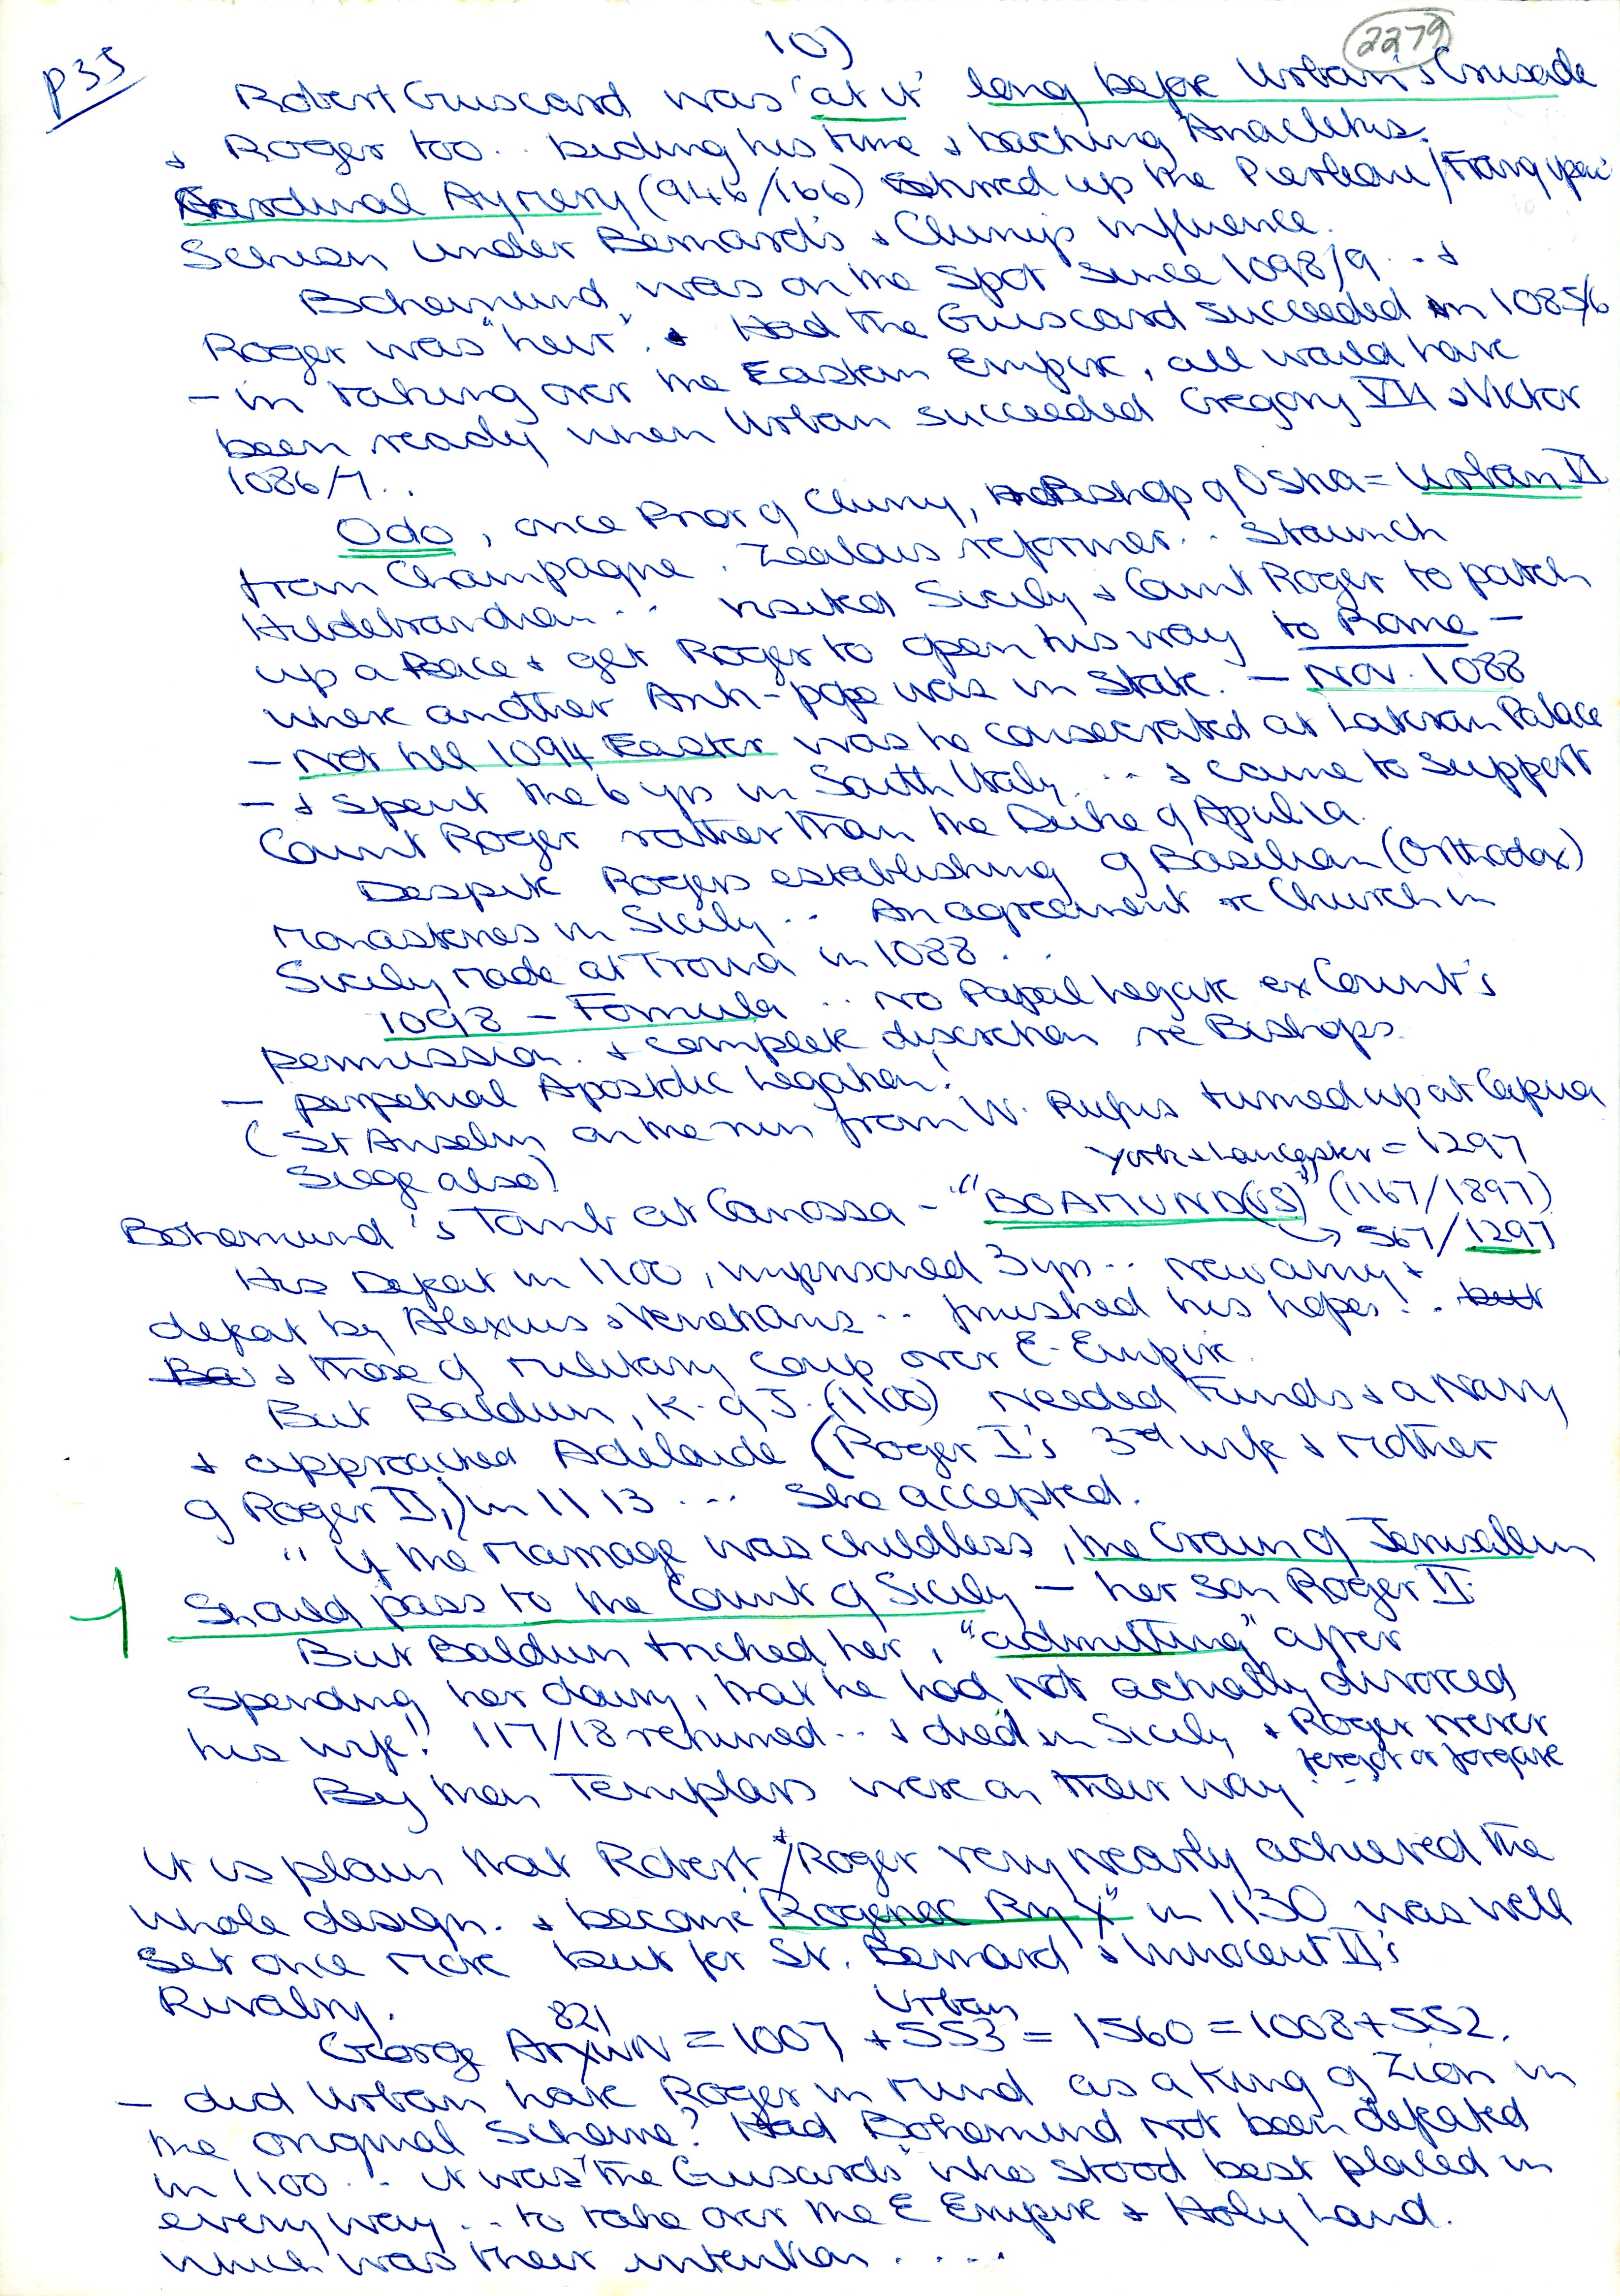 10)
2279
p35
Robert Guiscard was 'at it' long before Urban's Crusade
& Roger too .. biding his time & backing Anacletus.
Cardinal Aymery (946/166) stirred up the Pierleoni/Frangipani
Schism under Bernard's & Cluny's influence.
Bohemund, was on the spot since 1098/9 ... &
Roger was "heir". & Had the Guiscard succeeded in 1085/6
- in taking over the Eastern Empire, all would have
been ready when Urban succeeded Gregory VII & Victor
1086/7 ..
Odo, once Prior of Cluny, Bishop of Ostia = Urban II
from Champagne. Zealous reformer .. Staunch
Hildebrandian ... visited Sicily & Count Roger to patch
up a Peace & get Roger to open his way to Rome -
where another Anti-pope was in State. - Nov. 1088
- Not till 1094 Easter was he consecrated at Lateran Palace
- & spent the 6 yrs in South Italy ... & came to support
Count Roger rather than the Duke of Apulia.
Despite Rogers establishing of Basilian (Orthodox)
Monasteries in Sicily .. An agreement re Church in
Sicily made at Troina in 1088 ..
1098 - Formula .. No Papal Legate ex Count's
permission. & complete discretion re Bishops.
- perpetual Apostolic Legation!
(St Anselm on the run from W. Rufus turned up at Capua
Siege also)
York & Lancaster = 1297
Bohemund's Tomb at Canossa - "BOAMUND(US)" (1167/1897)
↳ 567/1297
His Defeat in 1100, imprisoned 3 yrs .. new army &
defeat by Alexius & Venetians .. finished his hopes! . but
Bo & those of military coup over E. Empire.
But Baldwin, K. of J. (1100) needed Funds & a Navy
& approached Adelaide (Roger I's 3rd wife & mother
of Roger II,) in 1113 ... She accepted.
"if the marriage was childless, the Crown of Jerusalem
should pass to the Count of Sicily - her son Roger II.
But Baldwin tricked her, "admitting" after
spending her dowry, that he had not actually divorced
his wife! 117/18 returned .. & died in Sicily & Roger never
forgot or forgave
By then Templars were on their way ...
It is plain that Robert &/Roger very nearly achieved the
whole design. & became "Rogeriec Ryx" in 1130 was well
set once more but for St. Bernard & Innocent II's
Rivalry.
821 Urban
George Arxwn = 1007 + 553 = 1560 = 1008 + 552.
- did Urban have Roger in mind as a King of Zion in
the original scheme? Had Bohemund not been defeated
in 1100 .. it was "the Guisards" who stood best placed in
every way .. to take over the E Empire & Holy Land.
which was their intention ....